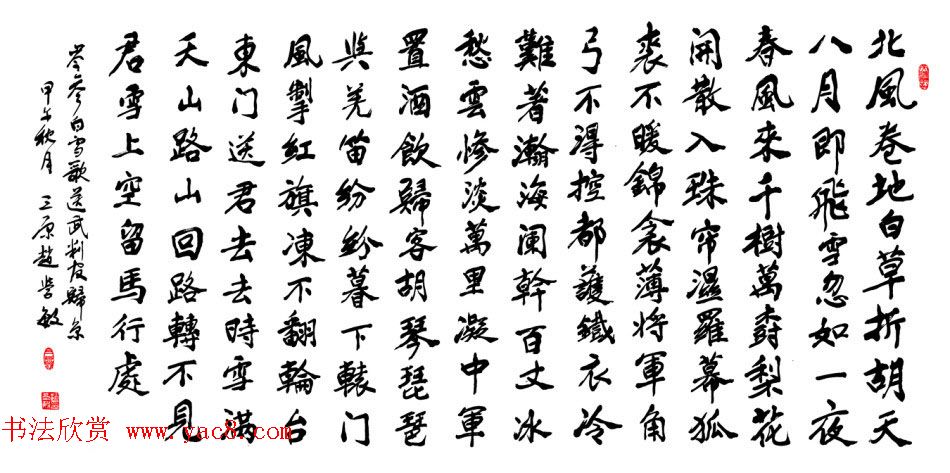 北風卷地白草折胡天
八月即飛雪忽如一夜
春風來千樹萬樹梨花
開散入珠帘濕羅幕狐
裘不暖錦衾薄將軍角
弓不得控都護鐵衣冷
難著瀚海闌幹百丈冰
愁雲慘淡萬里凝中軍
置酒飲歸客胡琴琵琶
與羌笛紛紛暮下轅门
風掣紅旗凍不翻輪台
東门送君去去時雪滿
天山路山回路轉不見
君雪上空留馬行處
岑参白雪歌送武判官歸京
甲午秋月 三原趙學敏
书法欣赏 www.yac8.com